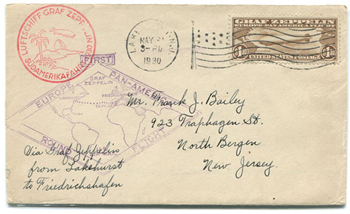 LUFTSCHIFF GRAF ZEPPELIN
SÜDAMERIKAFAHRT
FIRST
EUROPE PAN-AMERICA
GRAF ZEPPELIN
ROUND FLIGHT
MAY
1930
GRAF ZEPPELIN
EUROPE PAN AMERICA
UNITED STATES POSTAGE
Mr. Frank J. Bailey
923 Traphagen St.
North Bergen
New Jersey
Via Graf Zeppelin
from Lakehurst
to Friedrichshafen